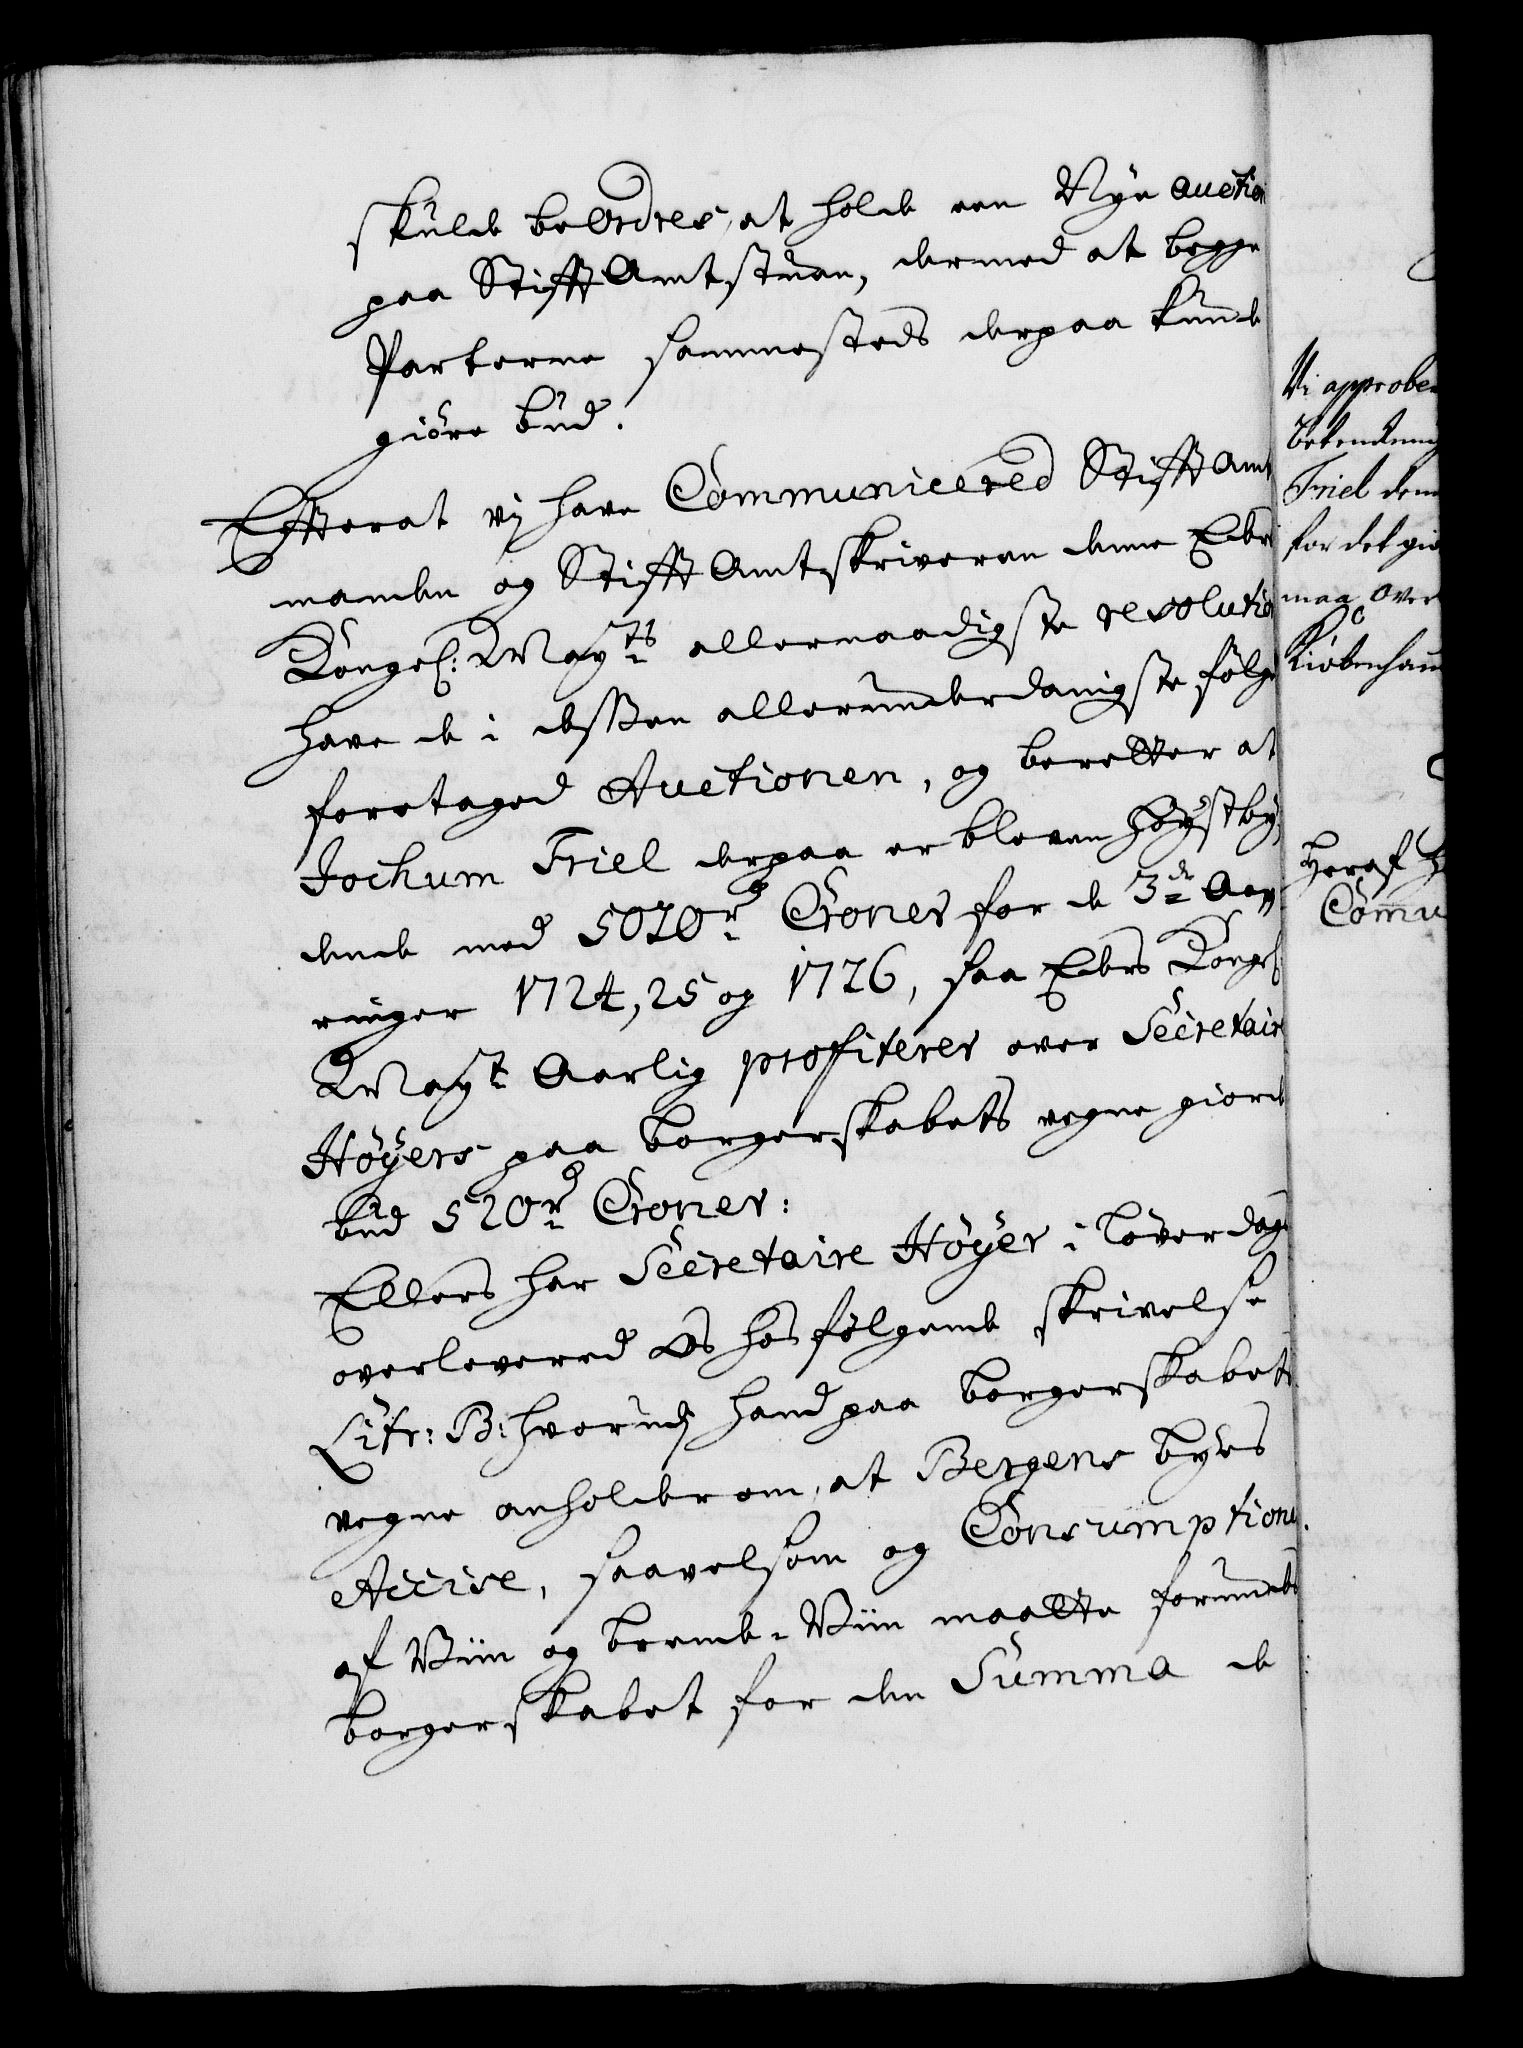 skulde beordres, at holde een Nye Auctio
paa StifftAmtstuen, dermed at begge
Parterne sammesteds derpaa kunde
giöre bud.
Effterat vj have Communicered StifftAmt
manden og StifftAmtskriveren denne Eders
Kongel: Mayts allernaadigste resolutio
have de i dessen allerunderdanigste fölge
foretaged Auctionen, og beretter at
Jochum Friel derpaa er bleven höystby
dende med 5020r Croner for de 3de Aa
ringer 1724, 25 og 1726, saa Eders Kongel
Mayt Aarlig profiterer over Secretair
Höyers paa borgerskabets vegne giorde
bud 520r Croner:
Ellers har Secretaire Höyer i löverdags
overlevered os hosfölgende skrivelse
Litr: B: hvorudj hand paa borgerskabets
vegne anholder om, at Bergens byes
Accise, saavelsom og Consumptionen
af Viin og brende-Viin maatte forundes
borgerskabet for den Summa de
Vi approbe
Friel dem
for det gio
maa over
Kiöbenhau
heraf
Comu